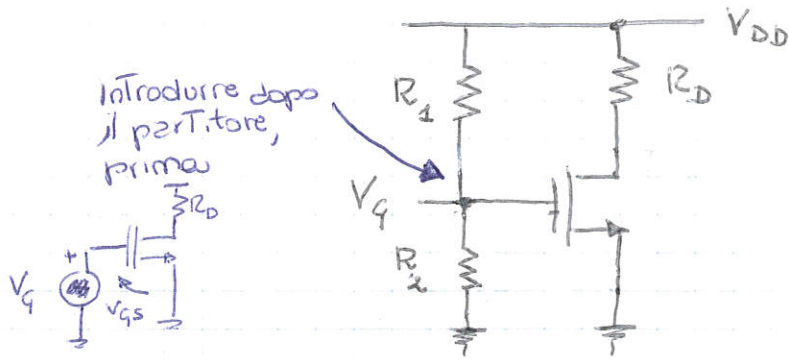 V_DD
Introdurre dopo
il partitore,
prima
R_1
R_D
V_G
R_2
R_D
V_G
+
V_GS